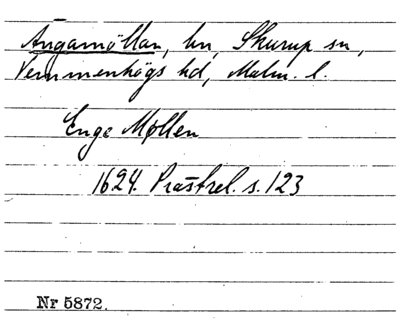 Ängamöllan, hn, Skurup sn,
Vemmenhögs hd, Malm. l.
Enge Møllen
1624. Prästrel. s. 123
Nr 5872.